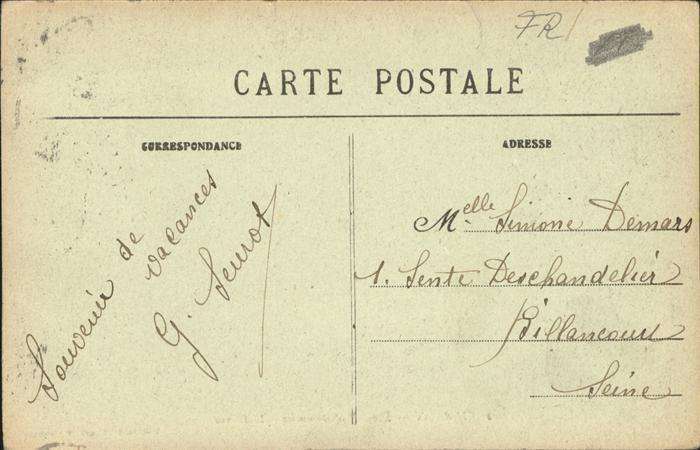 FR
CARTE POSTALE
CORRESPONDANCE
Souvenir de
vacances
G. Seurot
ADRESSE
Melle Simone Demars
1. Sente Deschandelier
Billancourt
Seine